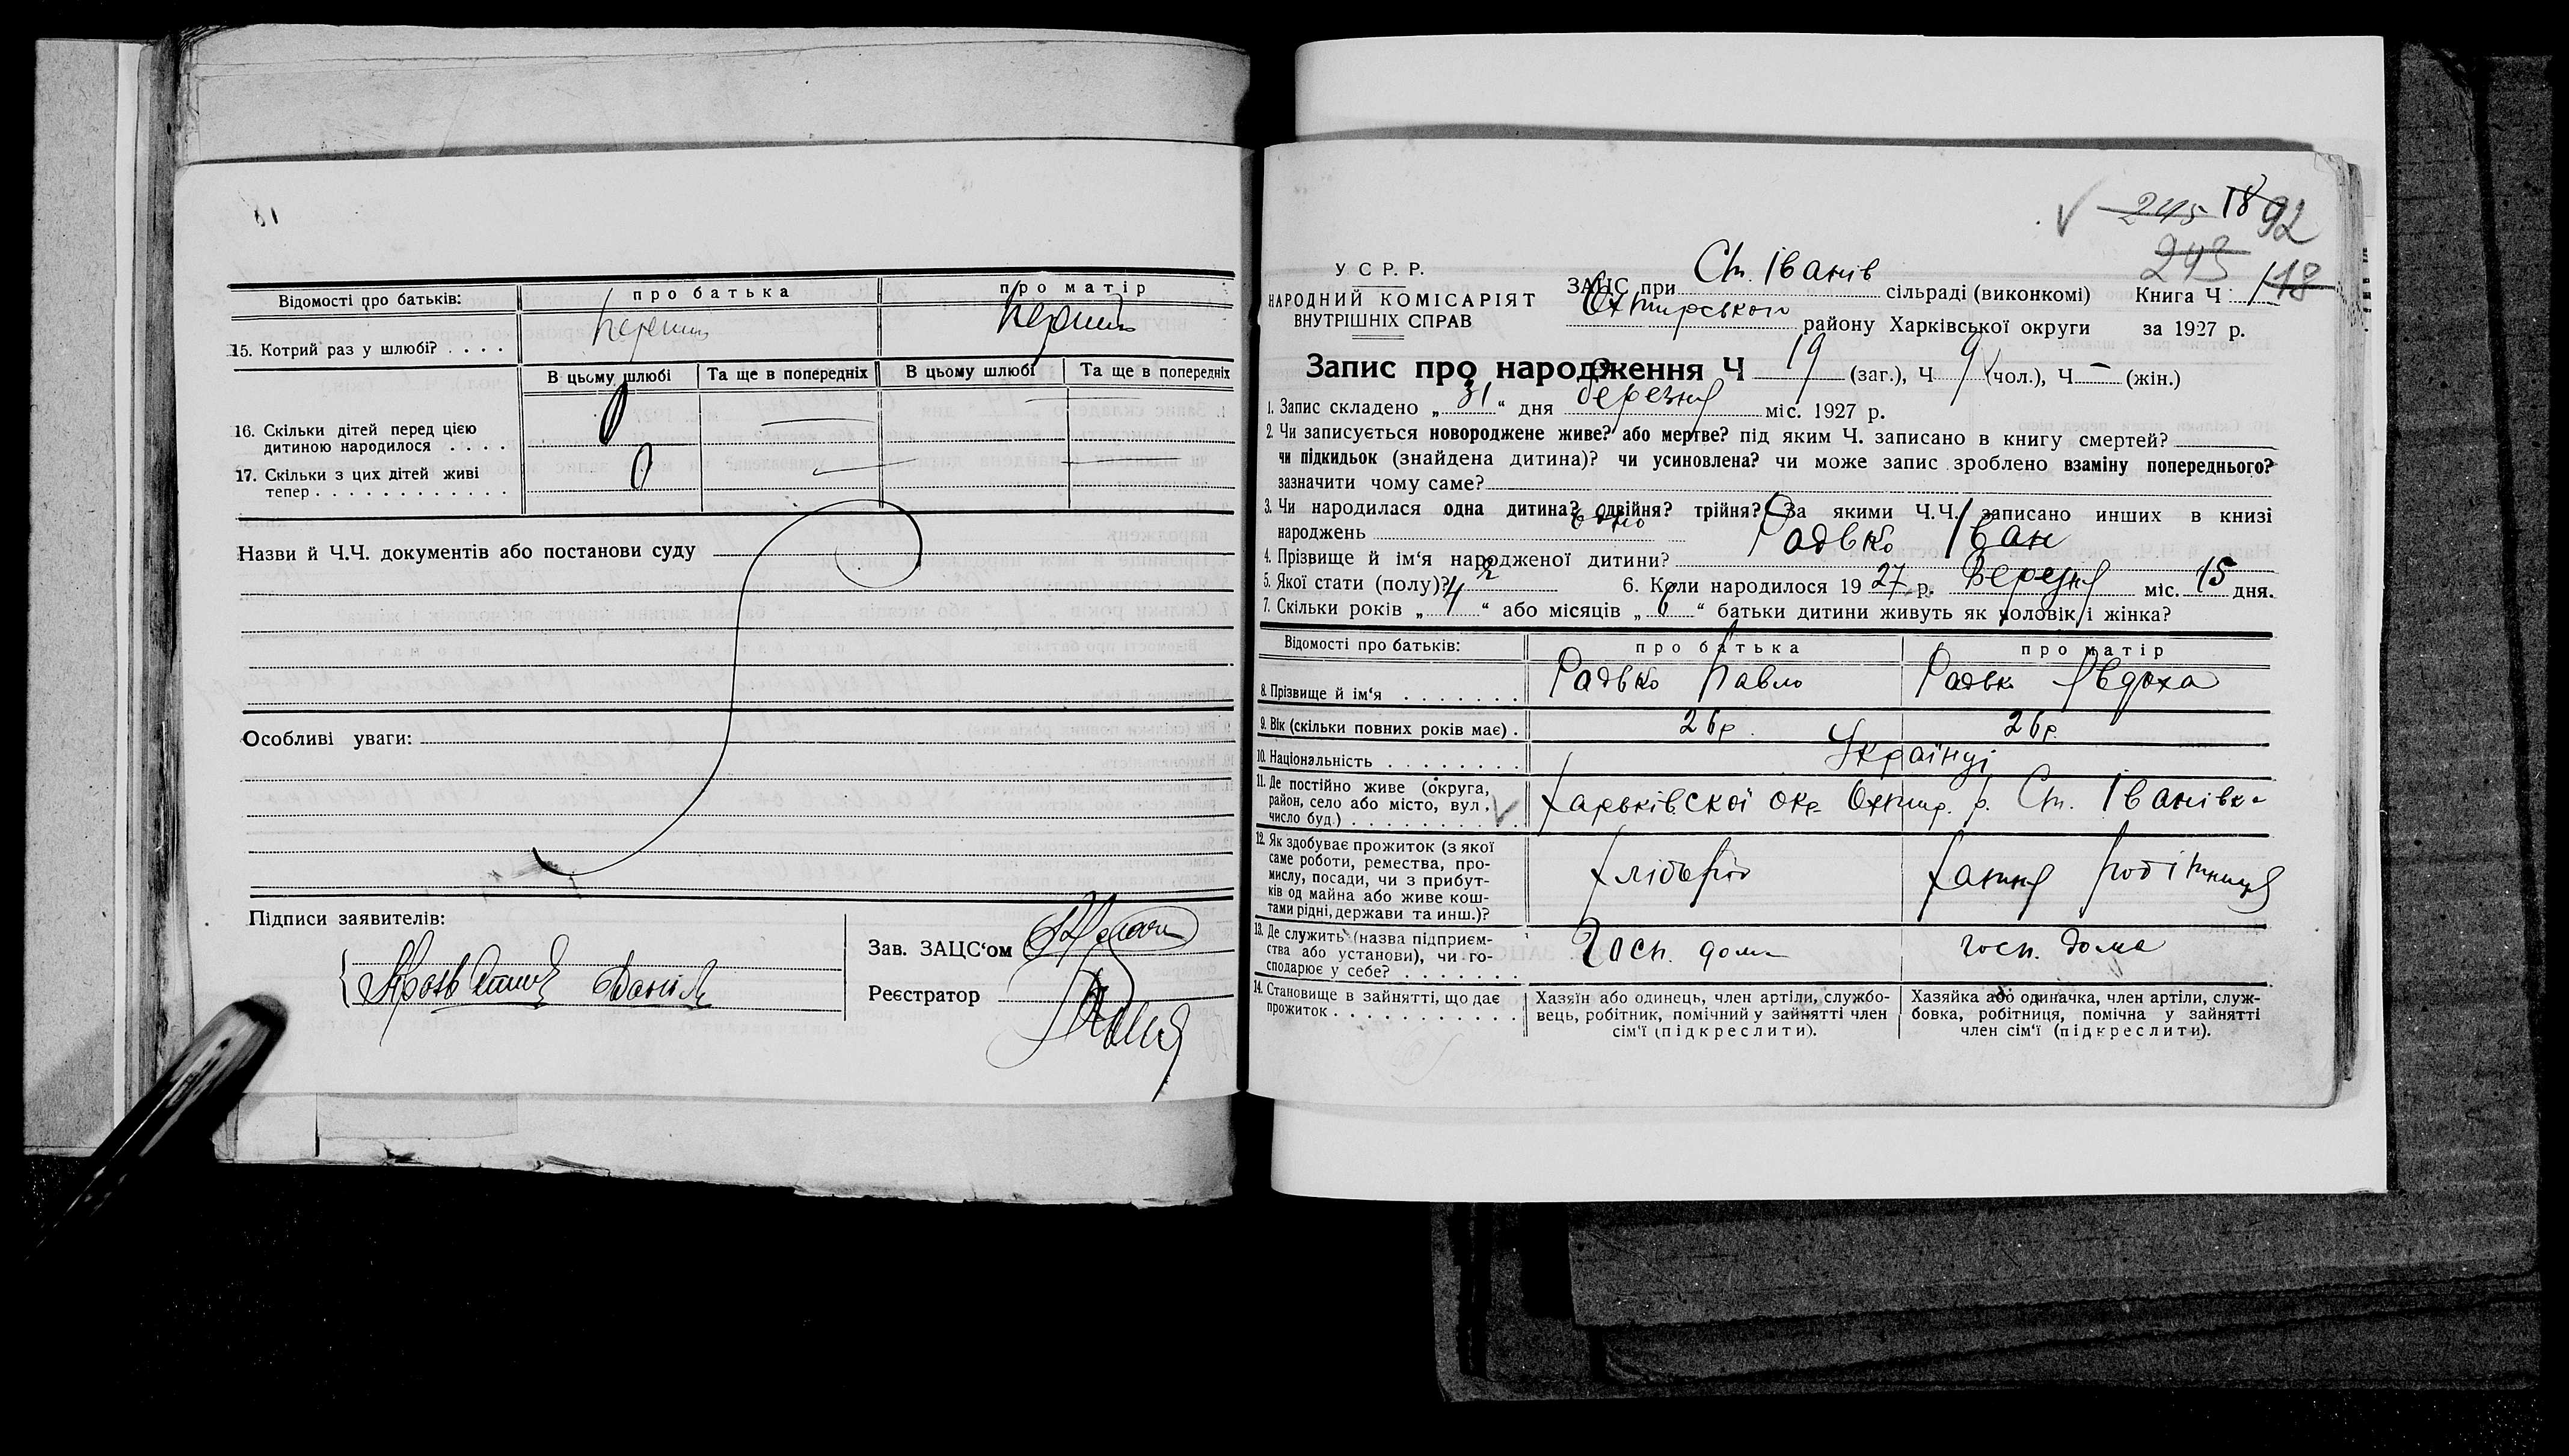 Відомості про батьків: про батька про матір
15. Котрий раз у шлюбі? . . . . перший перший
В цьому шлюбі Та ще в попередніх В цьому шлюбі Та ще в попередніх
16. Скільки дітей перед цією
дитиною народилося . . . . 0 —
17. Скільки з цих дітей живі
тепер . . . . . . . . . . . . 0 — —
Назви й Ч.Ч. документів або постанови суду
Особливі уваги:
Підписи заявителів:
Зав. ЗАЦС‘ом
Реєстратор
245 18 92
243
У. С Р. Р.
НАРОДНИЙ КОМІСАРІЯТ
ВНУТРІШНІХ СПРАВ
ЗАЦС при Ст. Іванів сільраді (виконкомі) Книга Ч 1 18
Охтирського району Харківської округи за 1927 р.
Запис про народження Ч 19 (заг.), Ч 9 (чол.), Ч — (жін.)
1. Запис складено „ 31 “ дня березня міс. 1927 р.
2. Чи записується новороджене живе? або мертве? під яким Ч. записано в книгу смертей?
чи підкидьок (знайдена дитина)? чи усиновлена? чи може запис зроблено взаміну попереднього?
зазначити чому саме?
3. Чи народилася одна дитина? двійня? трійня? За якими Ч.Ч. записано инших в книзі
народжень одно
4. Прізвище й ім‘я народженої дитини? Радько Іван
5. Якої стати (полу)? ч 6. Коли народилося 19 27 р. Березня міс. 15 дня.
7. Скільки років „ “ або місяців „ “ батьки дитини живуть як чоловік і жінка?
Відомості про батьків: про батька про матір
8. Прізвище й ім‘я . . . . . . . Радько Павло Радьк Явдоха
9. Вік (скільки повних років має) . 26 р. 26 р.
10. Національність . . . . . . . . Українці
11. Де постійно живе (округа,
район, село або місто, вул.,
число буд.) . . . . . . . . . . Харьківской окр Охтир. р. Ст. Іванівка
12. Як здобуває прожиток (з якої
саме роботи, ремества, про-
мислу, посади, чи з прибут-
ків од майна або живе кош-
тами рідні, держави та инш.)? хлібороб хатня робітниця
13. Де служить (назва підприєм-
ства або установи), чи го-
сподарює у себе? . . . . . . . Госп. дома госп. дома
14. Становище в зайнятті, що дає
прожиток . . . . . . . . . . .
Хазяїн або одинець, член артіли, службо-
вець, робітник, помічний у зайнятті член
сім‘ї (підкреслити).
Хазяйка або одиначка, член артіли, служ-
бовка, робітниця, помічна у зайнятті
член сім‘ї (підкреслити).